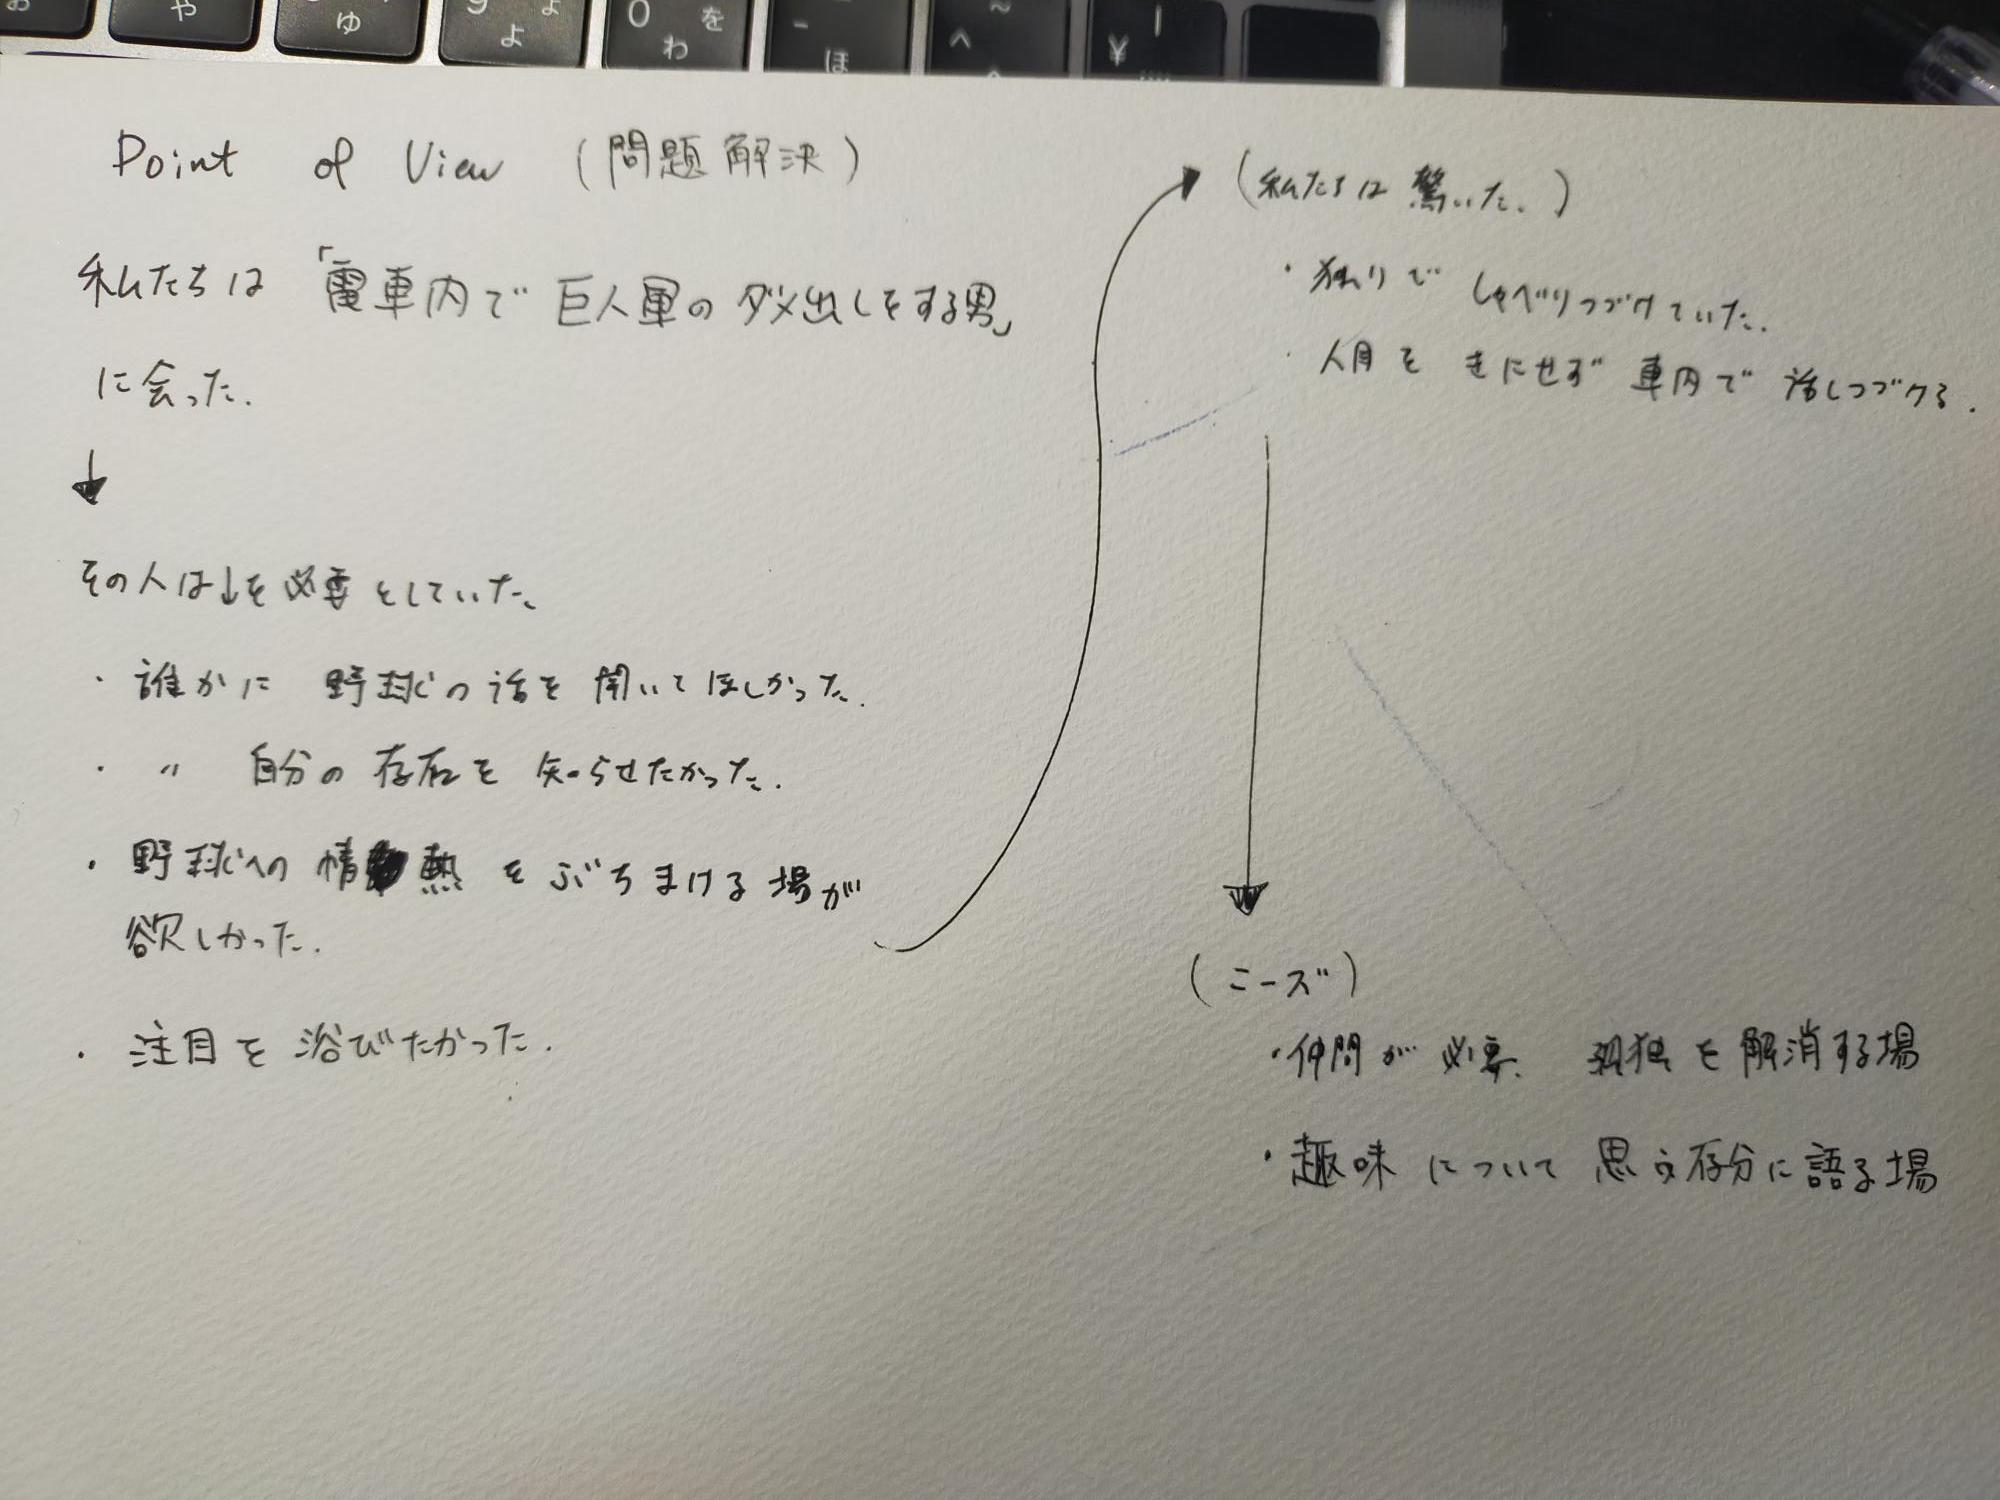 お
や
ゆ
よ
よ
0 を
わ
-
ほ
~
^
¥ |
Point of View (問題解決)
私たちは「電車内で巨人軍のダメ出しをする男」
に会った.
↓
その人は↓を必要としていた。
・誰かに 野球の話を聞いてほしかった.
・〃 自分の存在を知らせたかった.
・野球への情熱をぶちまける場が
欲しかった.
・注目を浴びたかった.
(私たちは驚いた.)
・独りでしゃべりつづけていた.
・人目をきにせず車内で話しつづける.
(ニーズ)
・仲間が必要. 孤独を解消する場
・趣味について思う存分に語る場